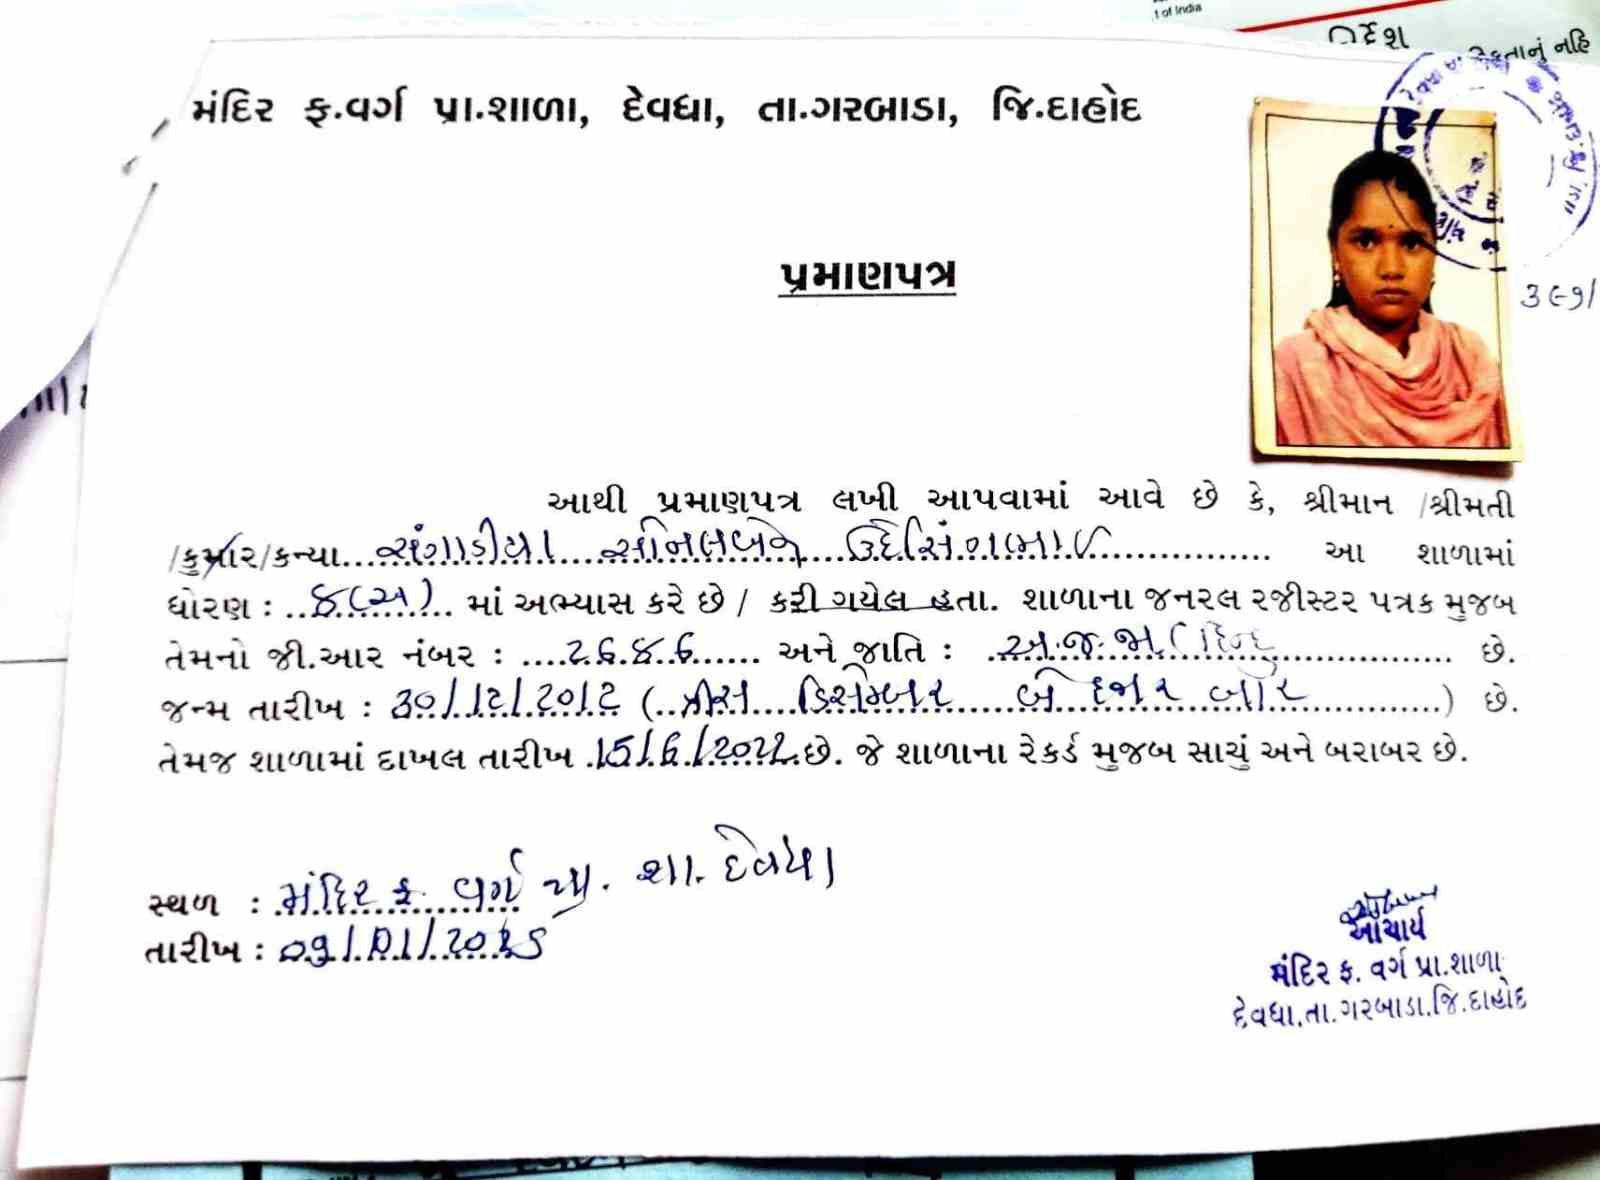 t of India
મંદિર ફ.વર્ગ પ્રા.શાળા, દેવધા, તા.ગરબાડા, જિ.દાહોદ
પ્રમાણપત્ર
આથી પ્રમાણપત્ર લખી આપવામાં આવે છે કે, શ્રીમાન /શ્રીમતી
/કુમાર/કન્યા...સંગાડીયા...અનિલાબેન...ઉદેસિંગભાઈ................ આ શાળામાં
ધોરણ : ..૪(અ).. માં અભ્યાસ કરે છે / કરી ગયેલ હતા. શાળાના જનરલ રજીસ્ટર પત્રક મુજબ
તેમનો જી.આર નંબર : ....2646...... અને જાતિ : ..અ.જ.જા.(હિન્દુ.................. છે.
જન્મ તારીખ : 30/12/2012 (..ત્રીસ....ડિસેમ્બર......બે હજાર બાર............) છે.
તેમજ શાળામાં દાખલ તારીખ .15/6/2022.છે. જે શાળાના રેકર્ડ મુજબ સાચું અને બરાબર છે.
સ્થળ : મંદિર ફ. વર્ગ પ્રા. શા. દેવધા
તારીખ : 09/01/2025
આચાર્ય
મંદિર ફ. વર્ગ પ્રા.શાળા
દેવધા.તા.ગરબાડા.જિ.દાહોદ